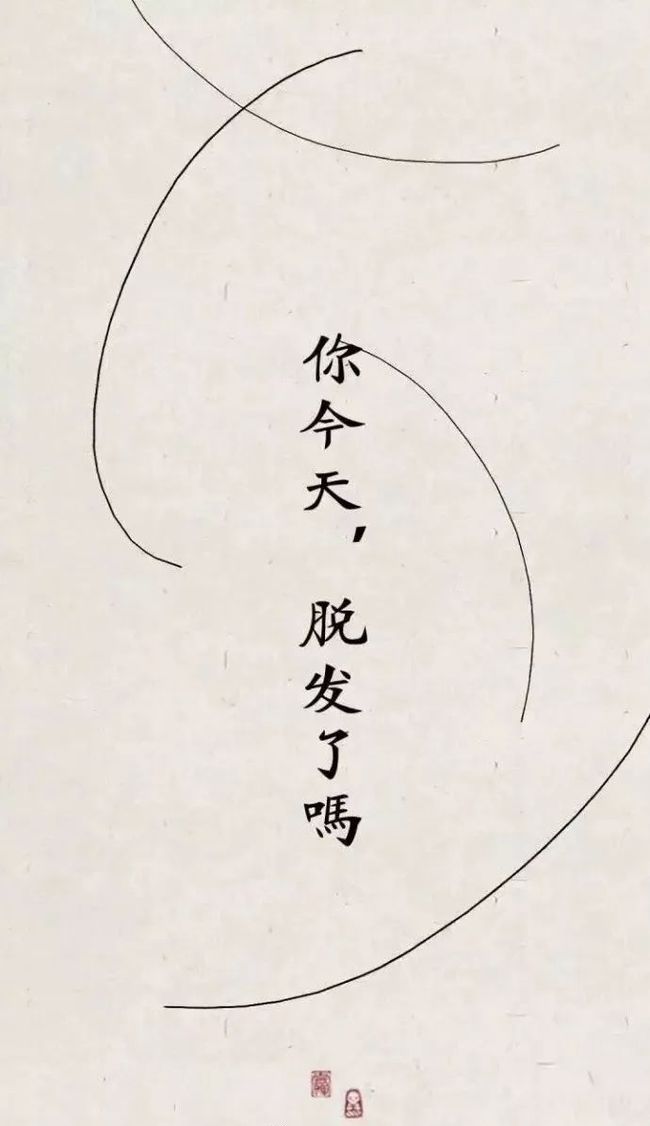 你今天，
脱发了嗎